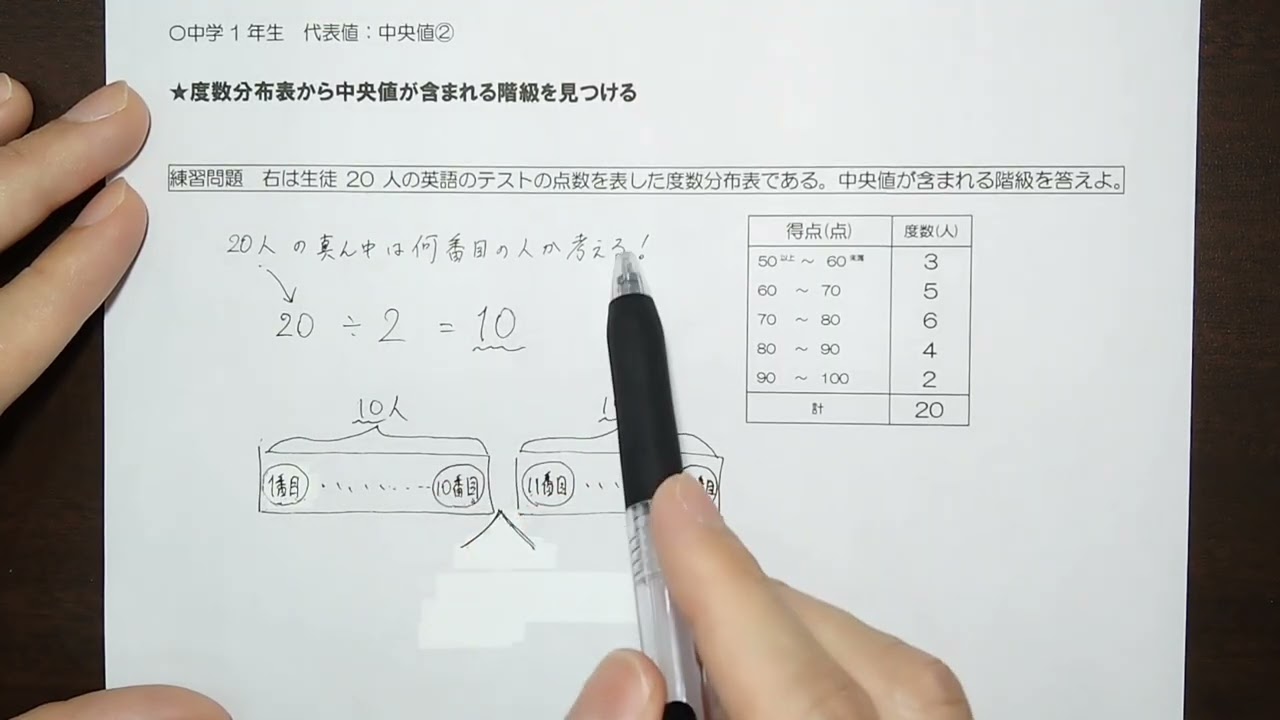 ○中学1年生 代表値:中央値②
★度数分布表から中央値が含まれる階級を見つける
練習問題 右は生徒 20 人の英語のテストの点数を表した度数分布表である。中央値が含まれる階級を答えよ。
20人の真ん中は何番目の人か考える!
20 ÷ 2 = 10
10人
1番目 ········ 10番目
11番目 ···
得点(点) 度数(人)
50以上 ～ 60未満 3
60 ～ 70 5
70 ～ 80 6
80 ～ 90 4
90 ～ 100 2
計 20